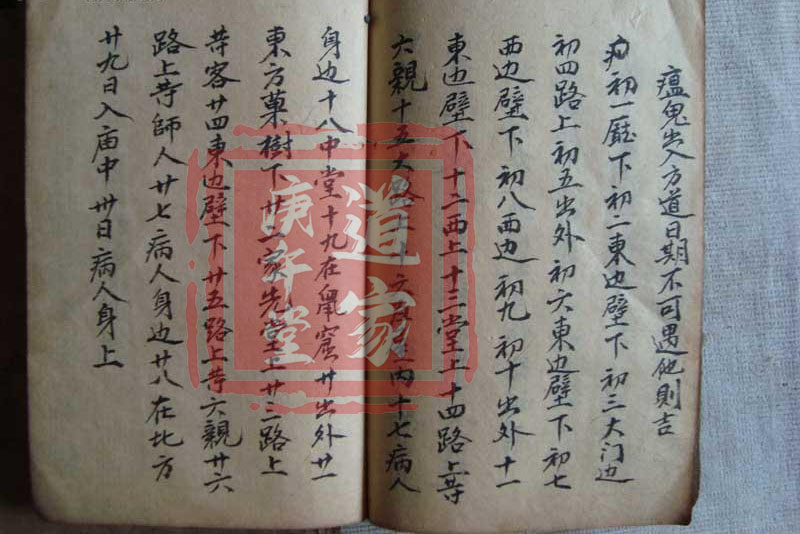 瘟鬼出入方道日期不可遇他則吉
初一廳下初二東边壁下初三大门边
初四路上初五出外初六東边壁下初七
西边壁下初八西边初九初十出外十一
東边壁下十二西上十三堂上十四路上等
六親十五大路上十六内十七病人
身边十八中堂十九在鼠窟廿出外廿一
東方菓樹下廿二家先堂上廿三路上
等客廿四東边壁下廿五路上等六親廿六
路上等師人廿七病人身边廿八在北方
廿九日入庙中卅日病人身上
道家
庚午堂